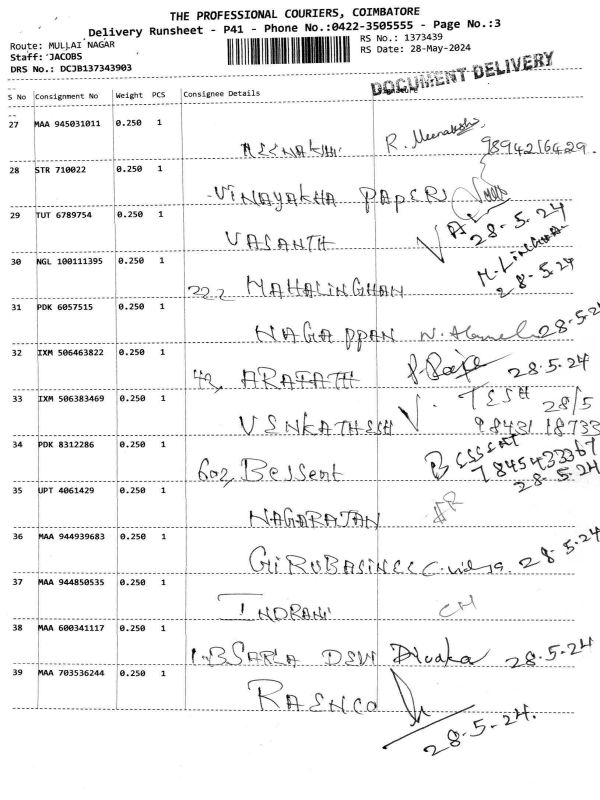 THE PROFESSIONAL COURIERS, COIMBATORE
Delivery Runsheet - P41 - Phone No.:0422-3505555 - Page No.:3
Route: MULLAI NAGAR
Staff: JACOBS
DRS No.: DCJB137343903
RS No.: 1373439
RS Date: 28-May-2024
DOCUMENT DELIVERY
S No Consignment No Weight PCS Consignee Details
27 MAA 945031011 0.250 1 MEENAKHI R. Meenakshi 9894216429
28 STR 710022 0.250 1 VINAYAKHA PAPERS
29 TUT 6789754 0.250 1 VASANTH 28-5.24
30 NGL 100111395 0.250 1 222 MAHALINGHAN 28-5.24
31 PDK 6057515 0.250 1 NAGAPPAN 28-5.24
32 IXM 506463822 0.250 1 42, ARAFATH 28.5.24
33 IXM 506383469 0.250 1 VENKATHESH V. TESH 28/5
9843118733
34 PDK 8312286 0.250 1 602, Bessent Bessent
7845433367
28-5.24
35 UPT 4061429 0.250 1 NAGARAJAN
36 MAA 944939683 0.250 1 28-5.24
37 MAA 944850535 0.250 1 INDRANI
38 MAA 600341117 0.250 1 1.B SARLA DEVI 28.5.24
39 MAA 703536244 0.250 1 RAENCO
28-5-24.